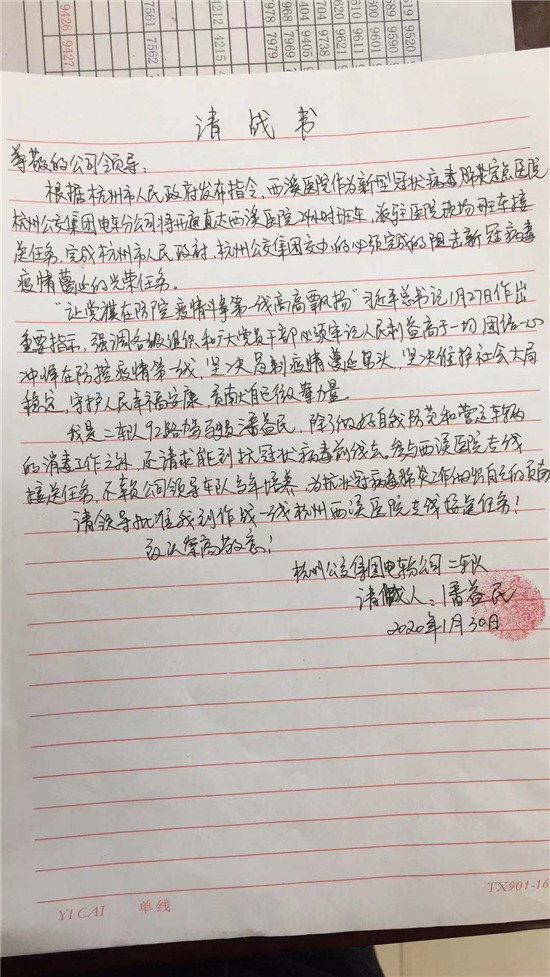 9426 9427
7561 7562
4212 4215
8978 7968 7979
9704 9405
9620 9738 9621
9610 9611
9589 9590 9600 9601
9519 9520
请战书
尊敬的公司领导:
根据杭州市人民政府发布指令,西溪医院作为新型冠状病毒肺炎定点医院
杭州公交集团电车分公司将开通直达西溪医院24小时班车,派驻医院现场班车接
送任务,完成杭州市人民政府、杭州公交集团交办的必须完成的阻击新冠病毒
疫情蔓延的光荣任务。
“让党旗在防控疫情斗争第一线高高飘扬”习近平总书记1月27日作出
重要指示,强调各级组织和广大党员干部必须牢记人民利益高于一切,团结一心
冲锋在防控疫情第一线,坚决遏制疫情蔓延势头,坚决维护社会大局
稳定,守护人民幸福安康,贡献自己微薄力量。
我是二车队92路驾驶员潘益民,除了做好自我防范和营运车辆
的消毒工作之外,还请求能到抗冠状病毒前线去,参与西溪医院专线
接送任务,不辜负公司领导车队多年培养,为抗状冠病毒肺炎作出自己的贡献
请领导批准我到作战一线杭州西溪医院专线接送任务!
致以崇高敬意!
杭州公交集团电车公司二车队
请战人:潘益民
2020年1月30日
YI CAI 单线
TX901-16